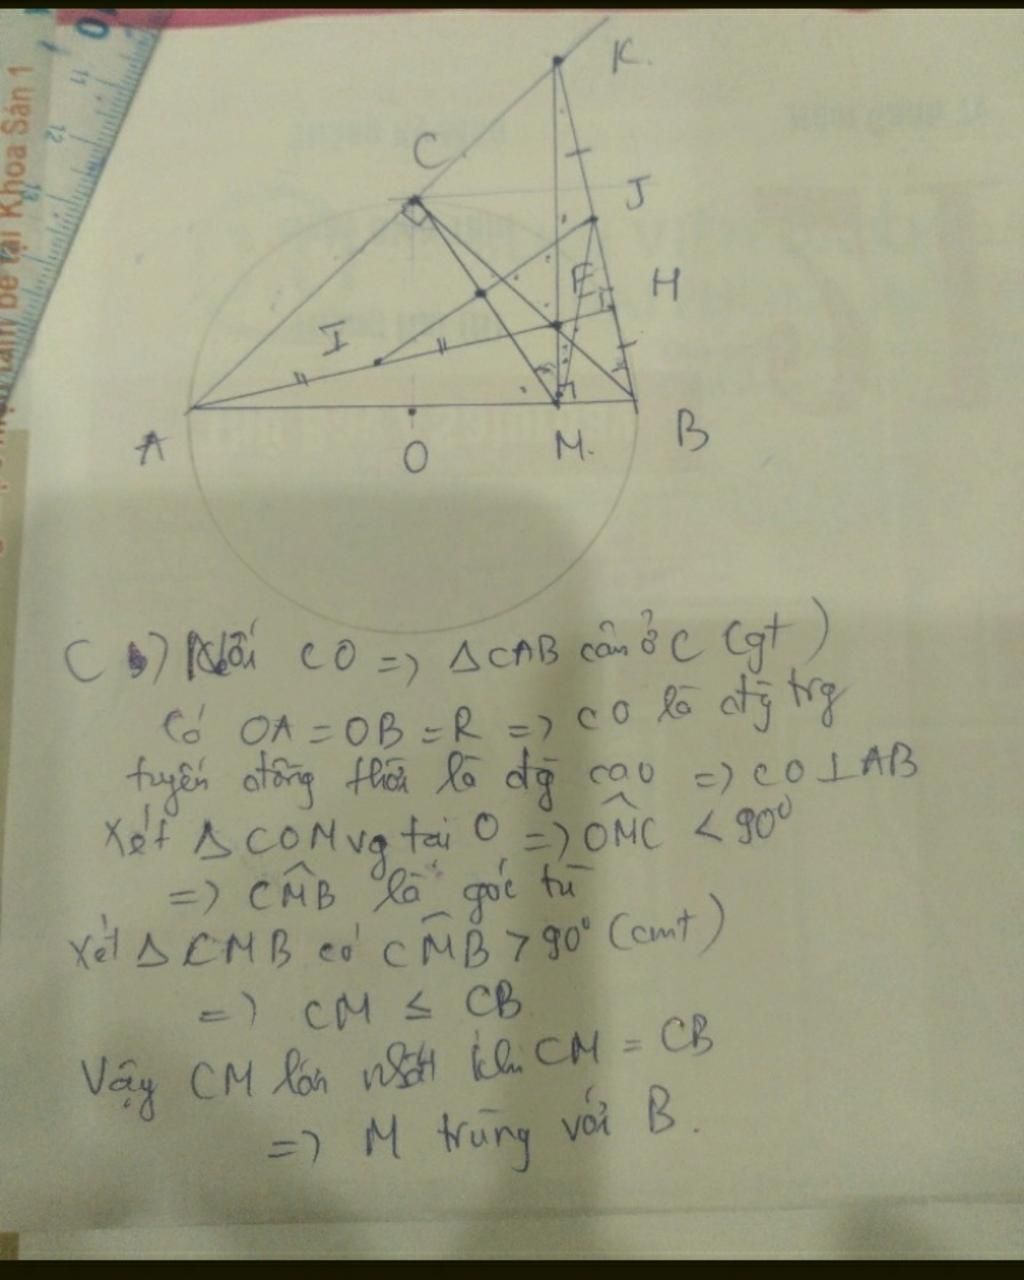 10
11
12
13
bé tại Khoa Sản 1
K.
C
J
E
H
I
A
O
M.
B
C) Nối CO => ΔCAB cân ở C (gt)
Có OA = OB = R => CO là đg trg
tuyến đồng thời là đg cao => CO⊥AB
Xét ΔCOM vg tại O => \widehat{OMC} < 90°
=> \widehat{CMB} là góc tù
Xét ΔCMB có \widehat{CMB} > 90° (cmt)
=> CM ≤ CB
Vậy CM lớn nhất khi CM = CB
=> M trùng với B.